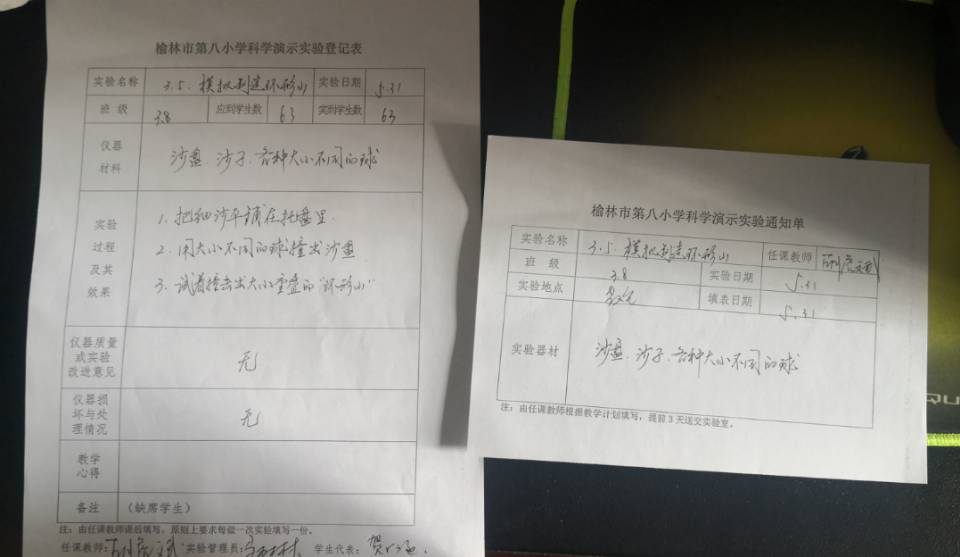 榆林市第八小学科学演示实验登记表
实验名称 3.5.模拟制造环形山 实验日期 5.31
班 级 3.8 应到学生数 63 实到学生数 63
仪器
材料
沙盘 沙子.各种大小不同的球
实验
过程
及其
效果
1.把细沙平铺在托盘里
2.用大小不同的球撞击沙盘
3.试着撞击出大小重叠的"环形山"
仪器质量
或实验
改进意见
无
仪器损
坏与处
理情况
无
教学
心得
备注 (缺席学生)
注:由任课教师课后填写,原则上要求每做一次实验填写一份。
任课教师: 实验管理员: 学生代表:
榆林市第八小学科学演示实验通知单
实验名称 3.5.模拟制造环形山 任课教师
班 级 3.8 实验日期 5.31
实验地点 教室 填表日期 5.31
实验器材 沙盘.沙子.各种大小不同的球
注:由任课教师根据教学计划填写,提前3天送交实验室。
QU